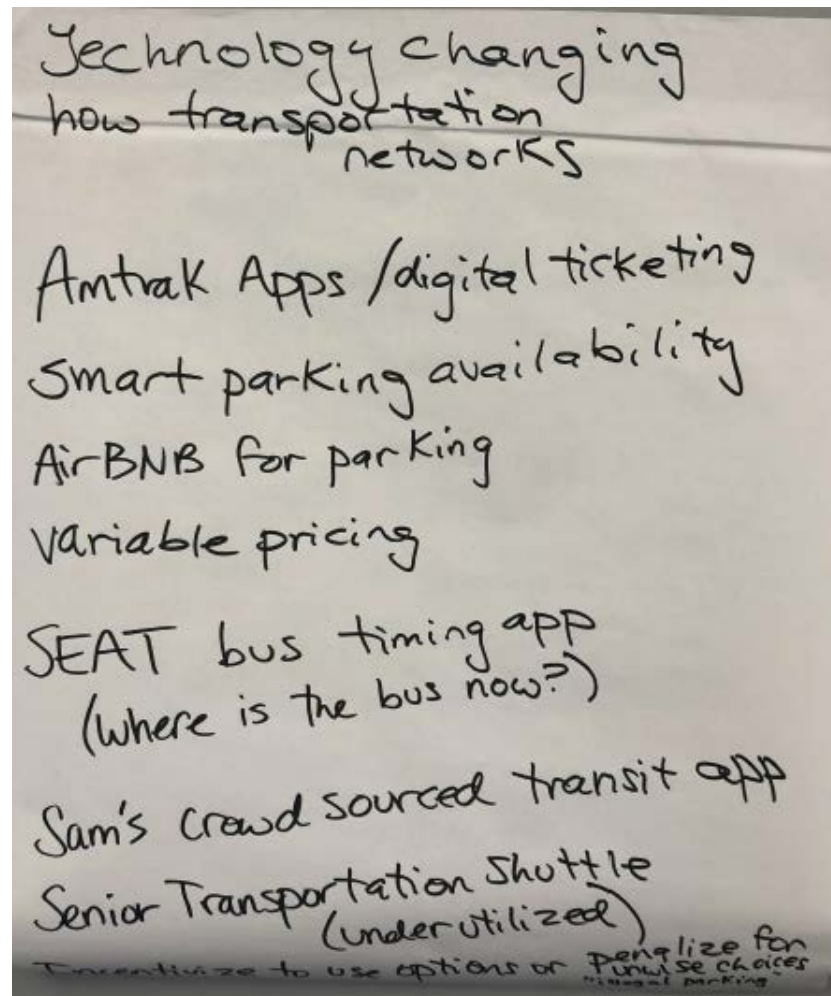 Technology changing
how transportation
networks
Amtrak Apps /digital ticketing
Smart parking availability
AirBNB for parking
variable pricing
SEAT bus timing app
(where is the bus now?)
Sam's crowd sourced transit app
Senior Transportation Shuttle
(underutilized)
Incentivize to use options or penalize for
unwise choices
"illegal parking"